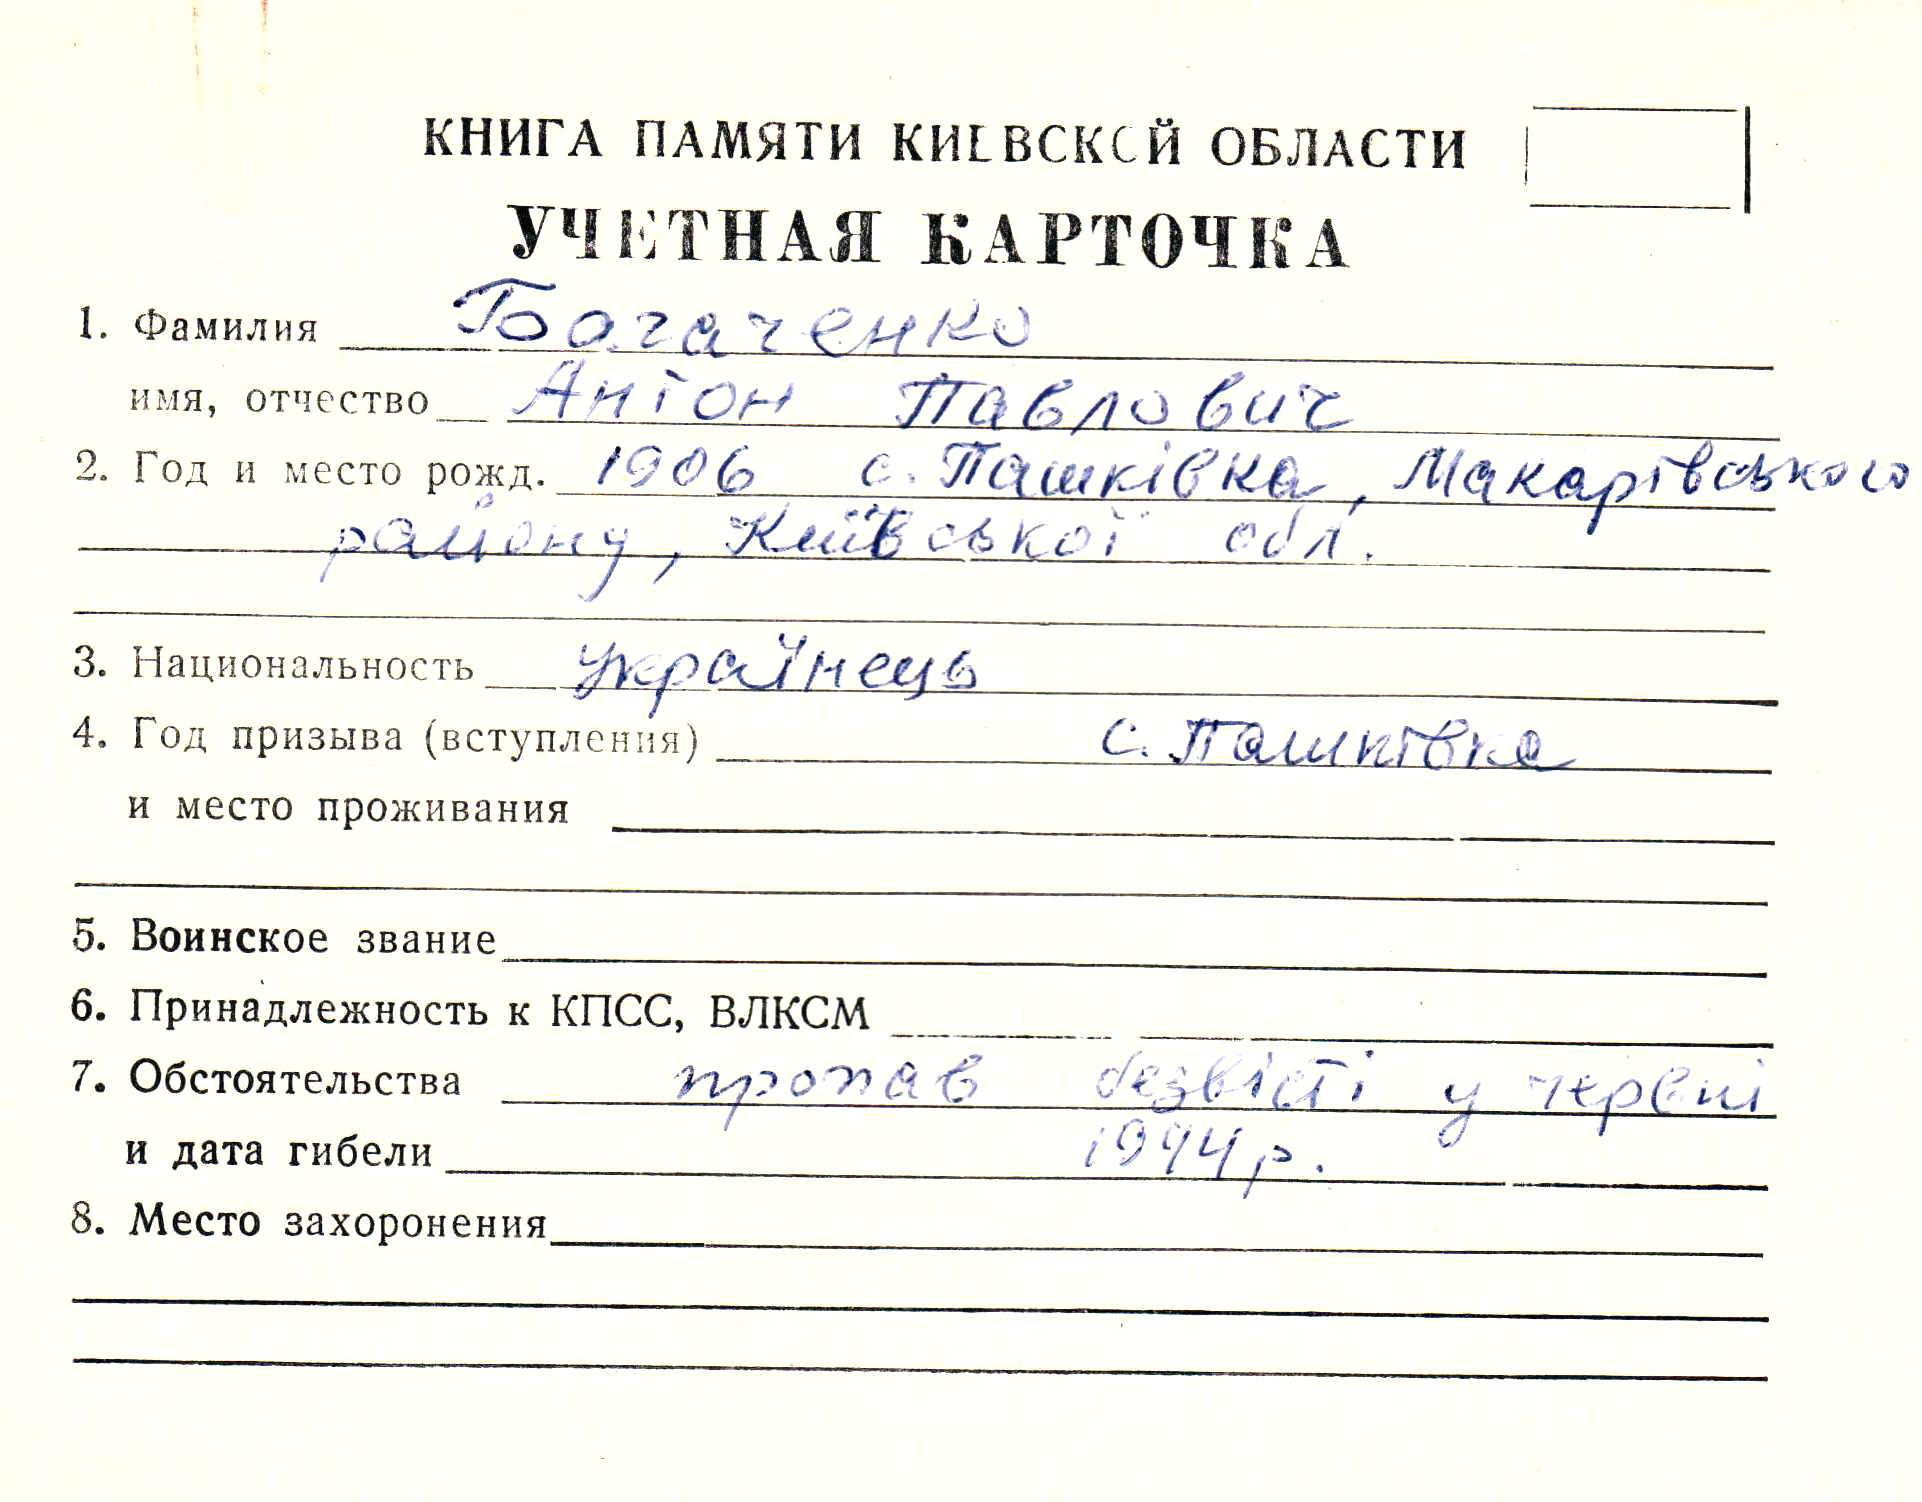 КНИГА ПАМЯТИ КИЕВСКОЙ ОБЛАСТИ
УЧЕТНАЯ КАРТОЧКА
1. Фамилия Богаченко
имя, отчество Антон Павлович
2. Год и место рожд. 1906 с. Пашківка, Макарівського
району, Київської обл.
3. Национальность українець
4. Год призыва (вступления) с. Пашківка
и место проживания
5. Воинское звание
6. Принадлежность к КПСС, ВЛКСМ
7. Обстоятельства пропав безвісті у червні
и дата гибели 1944 р.
8. Место захоронения